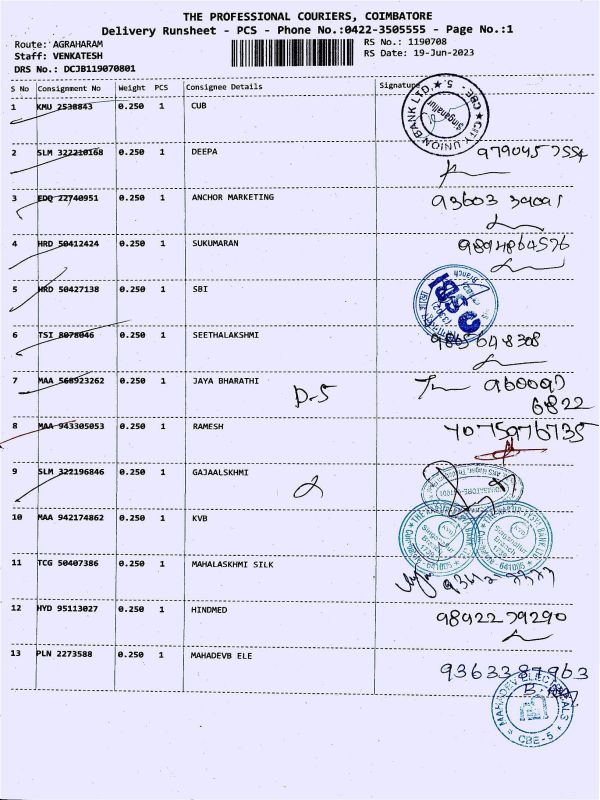 THE PROFESSIONAL COURIERS, COIMBATORE
Delivery Runsheet - PCS - Phone No.:0422-3505555 - Page No.:1
Route: AGRAHARAM
RS No.: 1190708
Staff: VENKATESH
RS Date: 19-Jun-2023
DRS No.: DCJB119070801
S No Consignment No Weight PCS Consignee Details Signature
1 KMU 2538843 0.250 1 CUB
CITY UNION BANK LTD. Singanallur CBE - 5.
2 SLM 322210168 0.250 1 DEEPA
9790457554
3 EDQ 22740951 0.250 1 ANCHOR MARKETING
93603 39091
4 HRD 50412424 0.250 1 SUKUMARAN
9894864576
5 HRD 50427138 0.250 1 SBI
SBI Branch
6 TSI 8078046 0.250 1 SEETHALAKSHMI
9865648308
7 MAA 568923262 0.250 1 JAYA BHARATHI
D-5
960097
6822
8 MAA 943305053 0.250 1 RAMESH
9 SLM 322196846 0.250 1 GAJAALSKHMI
10 MAA 942174862 0.250 1 KVB
KVB Singanallur Branch 641005
KVB Singanallur Branch 641005
11 TCG 50407386 0.250 1 MAHALASKHMI SILK
12 HYD 95113027 0.250 1 HINDMED
9892279290
13 PLN 2273588 0.250 1 MAHADEVB ELE
9363387963
MAHADEV ELECTRICALS CBE-5